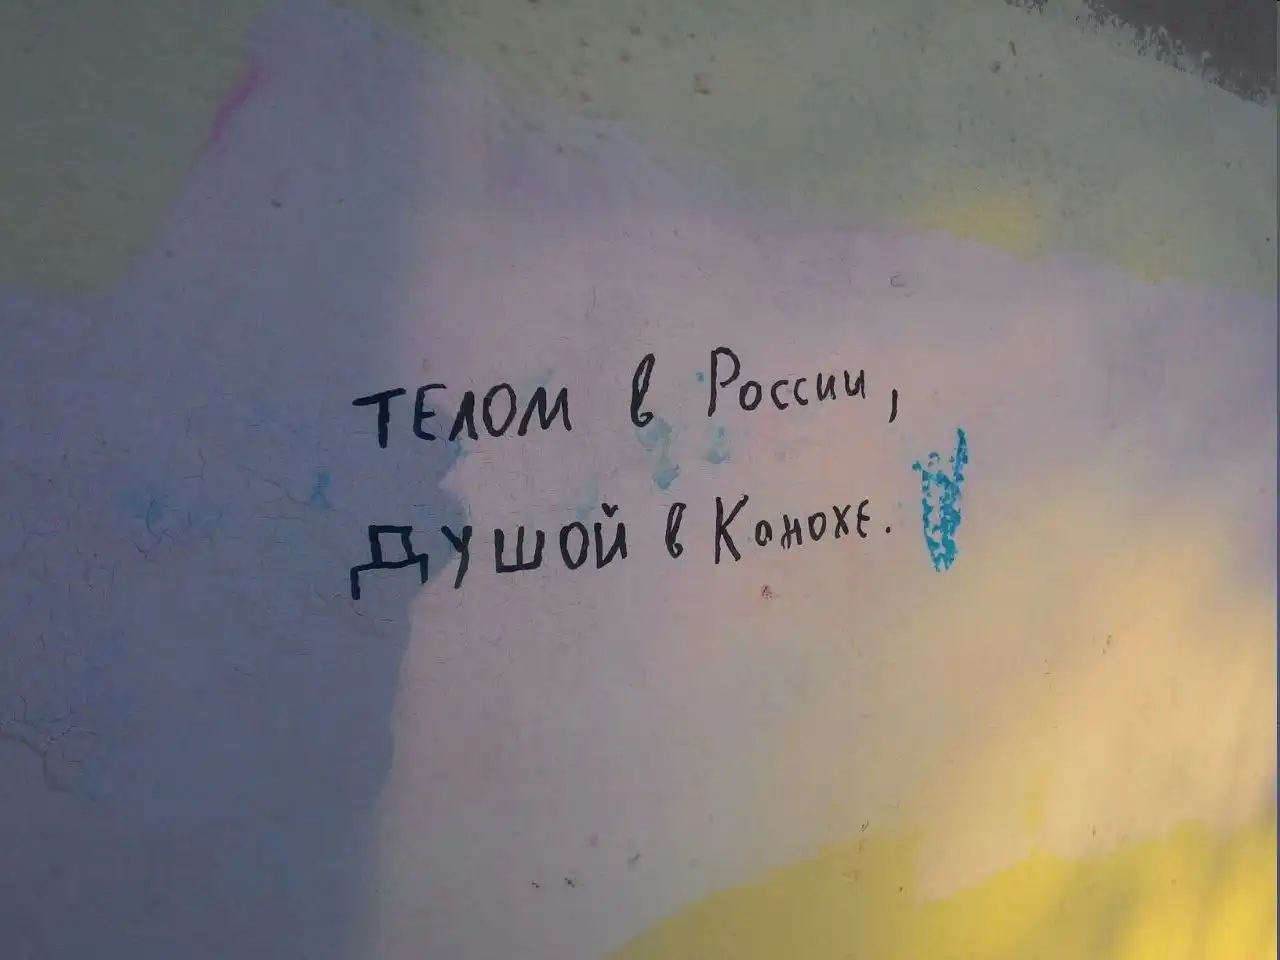 ТЕЛОМ в России,
ДУШОЙ в Канохе.